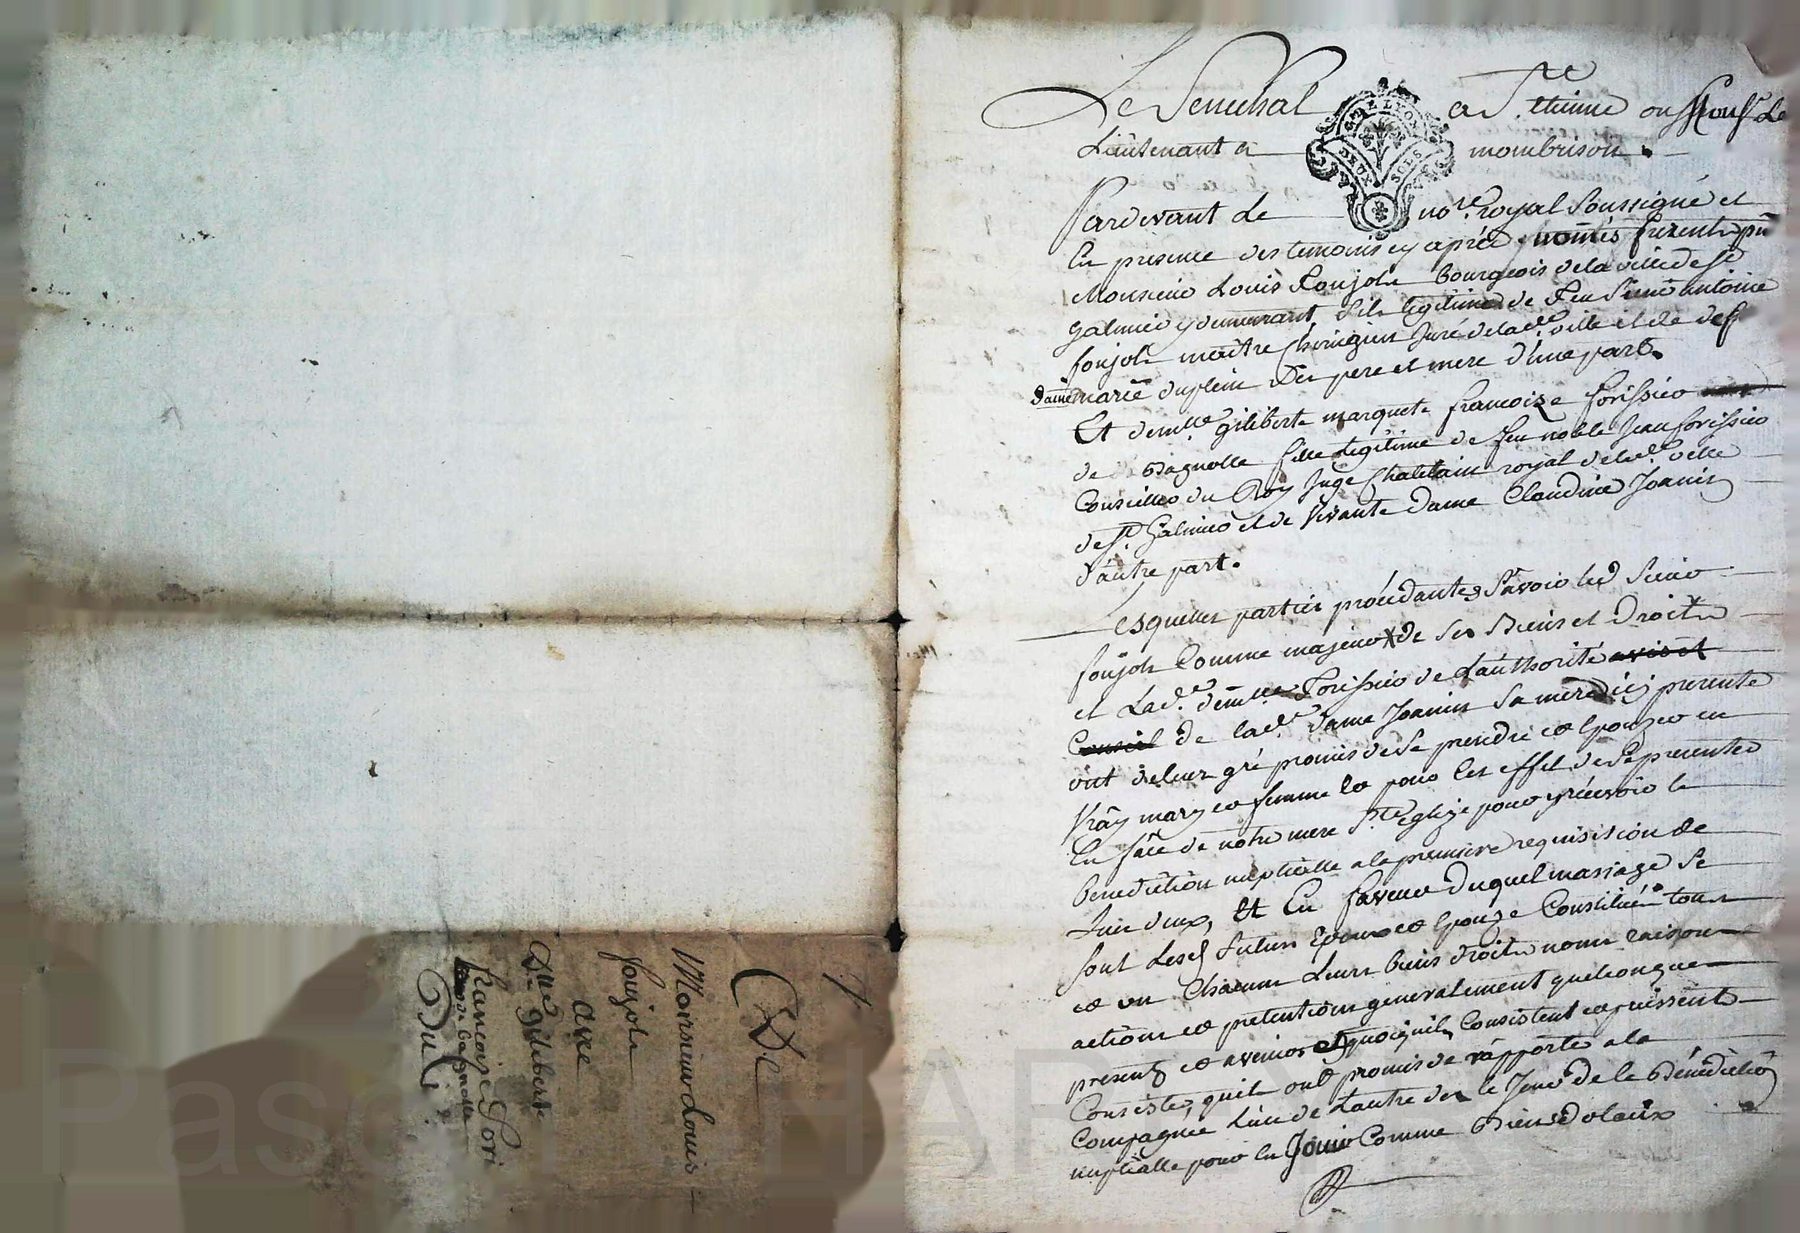 Le Senechal a St. etienne ou Monsr. Le
Lieutenant a monbrison.
GEN. LYON
DEUX SOLS
Pardevant Le nore. royal Soussigné et
En presence des temoins cy après nommés furent pnt
Monsieur Louis Foujols Bourgeois de la ville de St
Galmier y demeurant fils legitime de Feu Sieur antoine
foujols maître Chirurgien Juré de lade. ville et de def
dame marie duplein ses pere et mere d'une part.
Et demlle. giliberte marguete francoize forissier
de Bagnolle fille Legitime de feu noble Jean forissier
Conseiller du Roy Juge Chatelain royal de lad. ville
de St. Galmier et de Vivante Dame Claudine Joanin
d'autre part.
Lesquelles parties procédantes Savoir led Sieur
foujols Comme majeur & de ses Biens et Droits
et Lade. demlle Forissier de L'authorité avis et
Conseil de lade. Dame Joanin Sa mere icy presente
ont deleur gré promis de Se prendre et Epouzer en
Vray mary et femme et pour Cet effet de se presenter
En face de notre mere Ste. eglize pour y recevoir la
Benediction nuptialle a la premiere requisition de
L'un deux, Et En faveur duquel mariage Se
sont Lesd futurs Epoux et Epouze Constitués tous
et un Chacun Leurs biens droits noms raisons
actions et pretentions generalement quelconques
presents et avenir et quoiquils Consistent et puissent
Consister, quils ont promis de rapporter a la
Compagnie L'un de L'autre des le Jour de la Bénédiction
nuptialle pour En Jouir Comme Biens dotaux
CDe
Monsieur Louis
foujols
avec
Dlle. giliberte
francoize Fori
de bagnolle
Du
Pascal HA